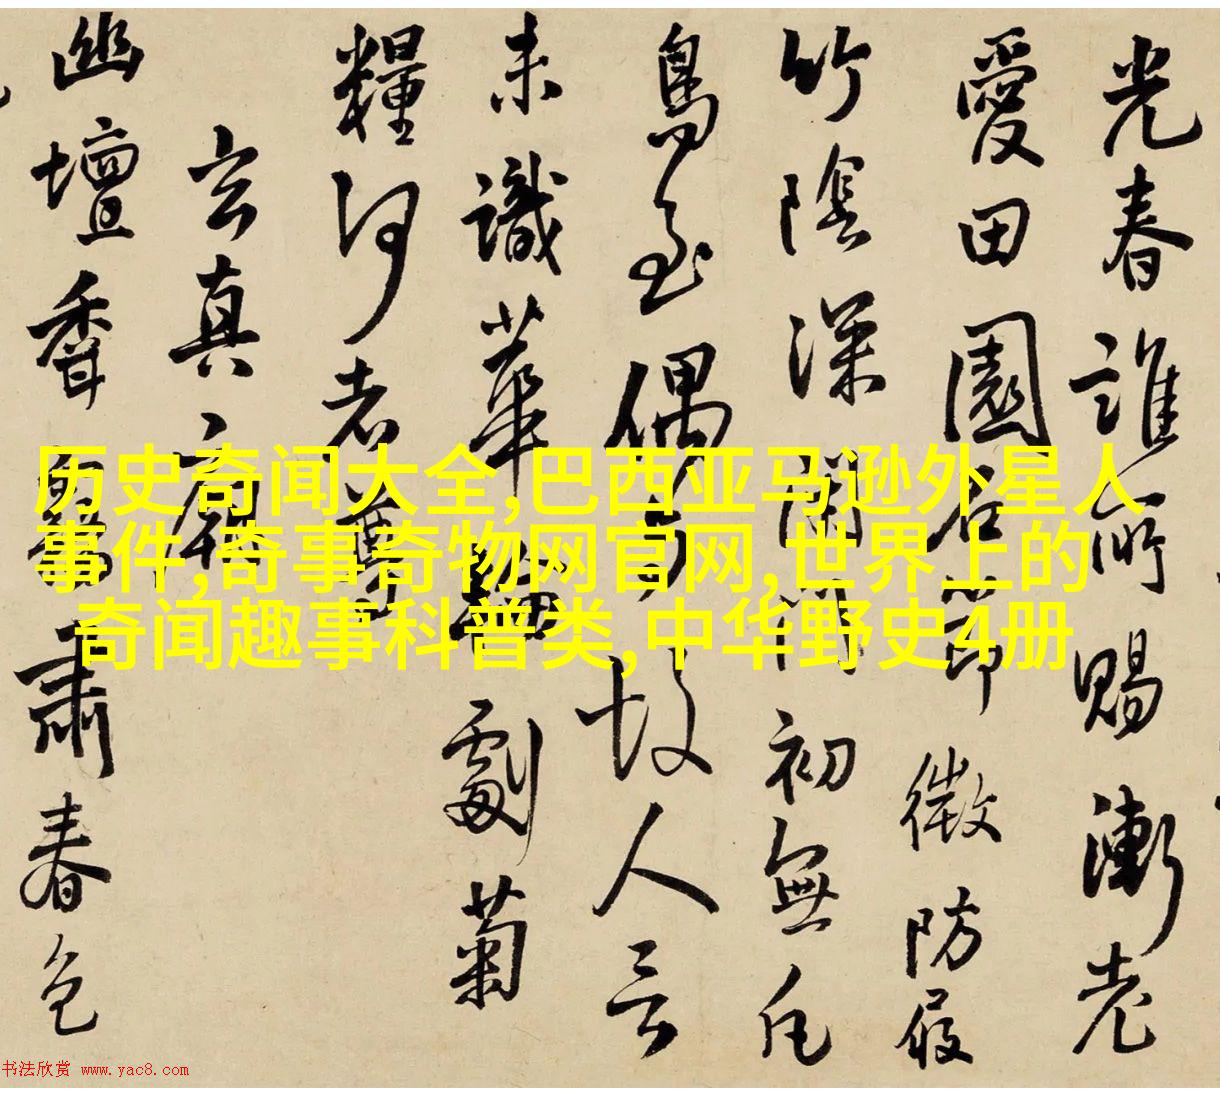 光春誰所賜漸老
愛田園石微防屐
竹陰深閉門初無凡
鳥至偶故人言
未識華劇菊
糧何者尊
玄真廟
幽壇肅春色
历史奇闻大全,巴西亚马逊外星人
事件,奇事奇物网官网,世界上的
奇闻趣事科普类,中华野史4册
书法欣赏 www.yac8.com